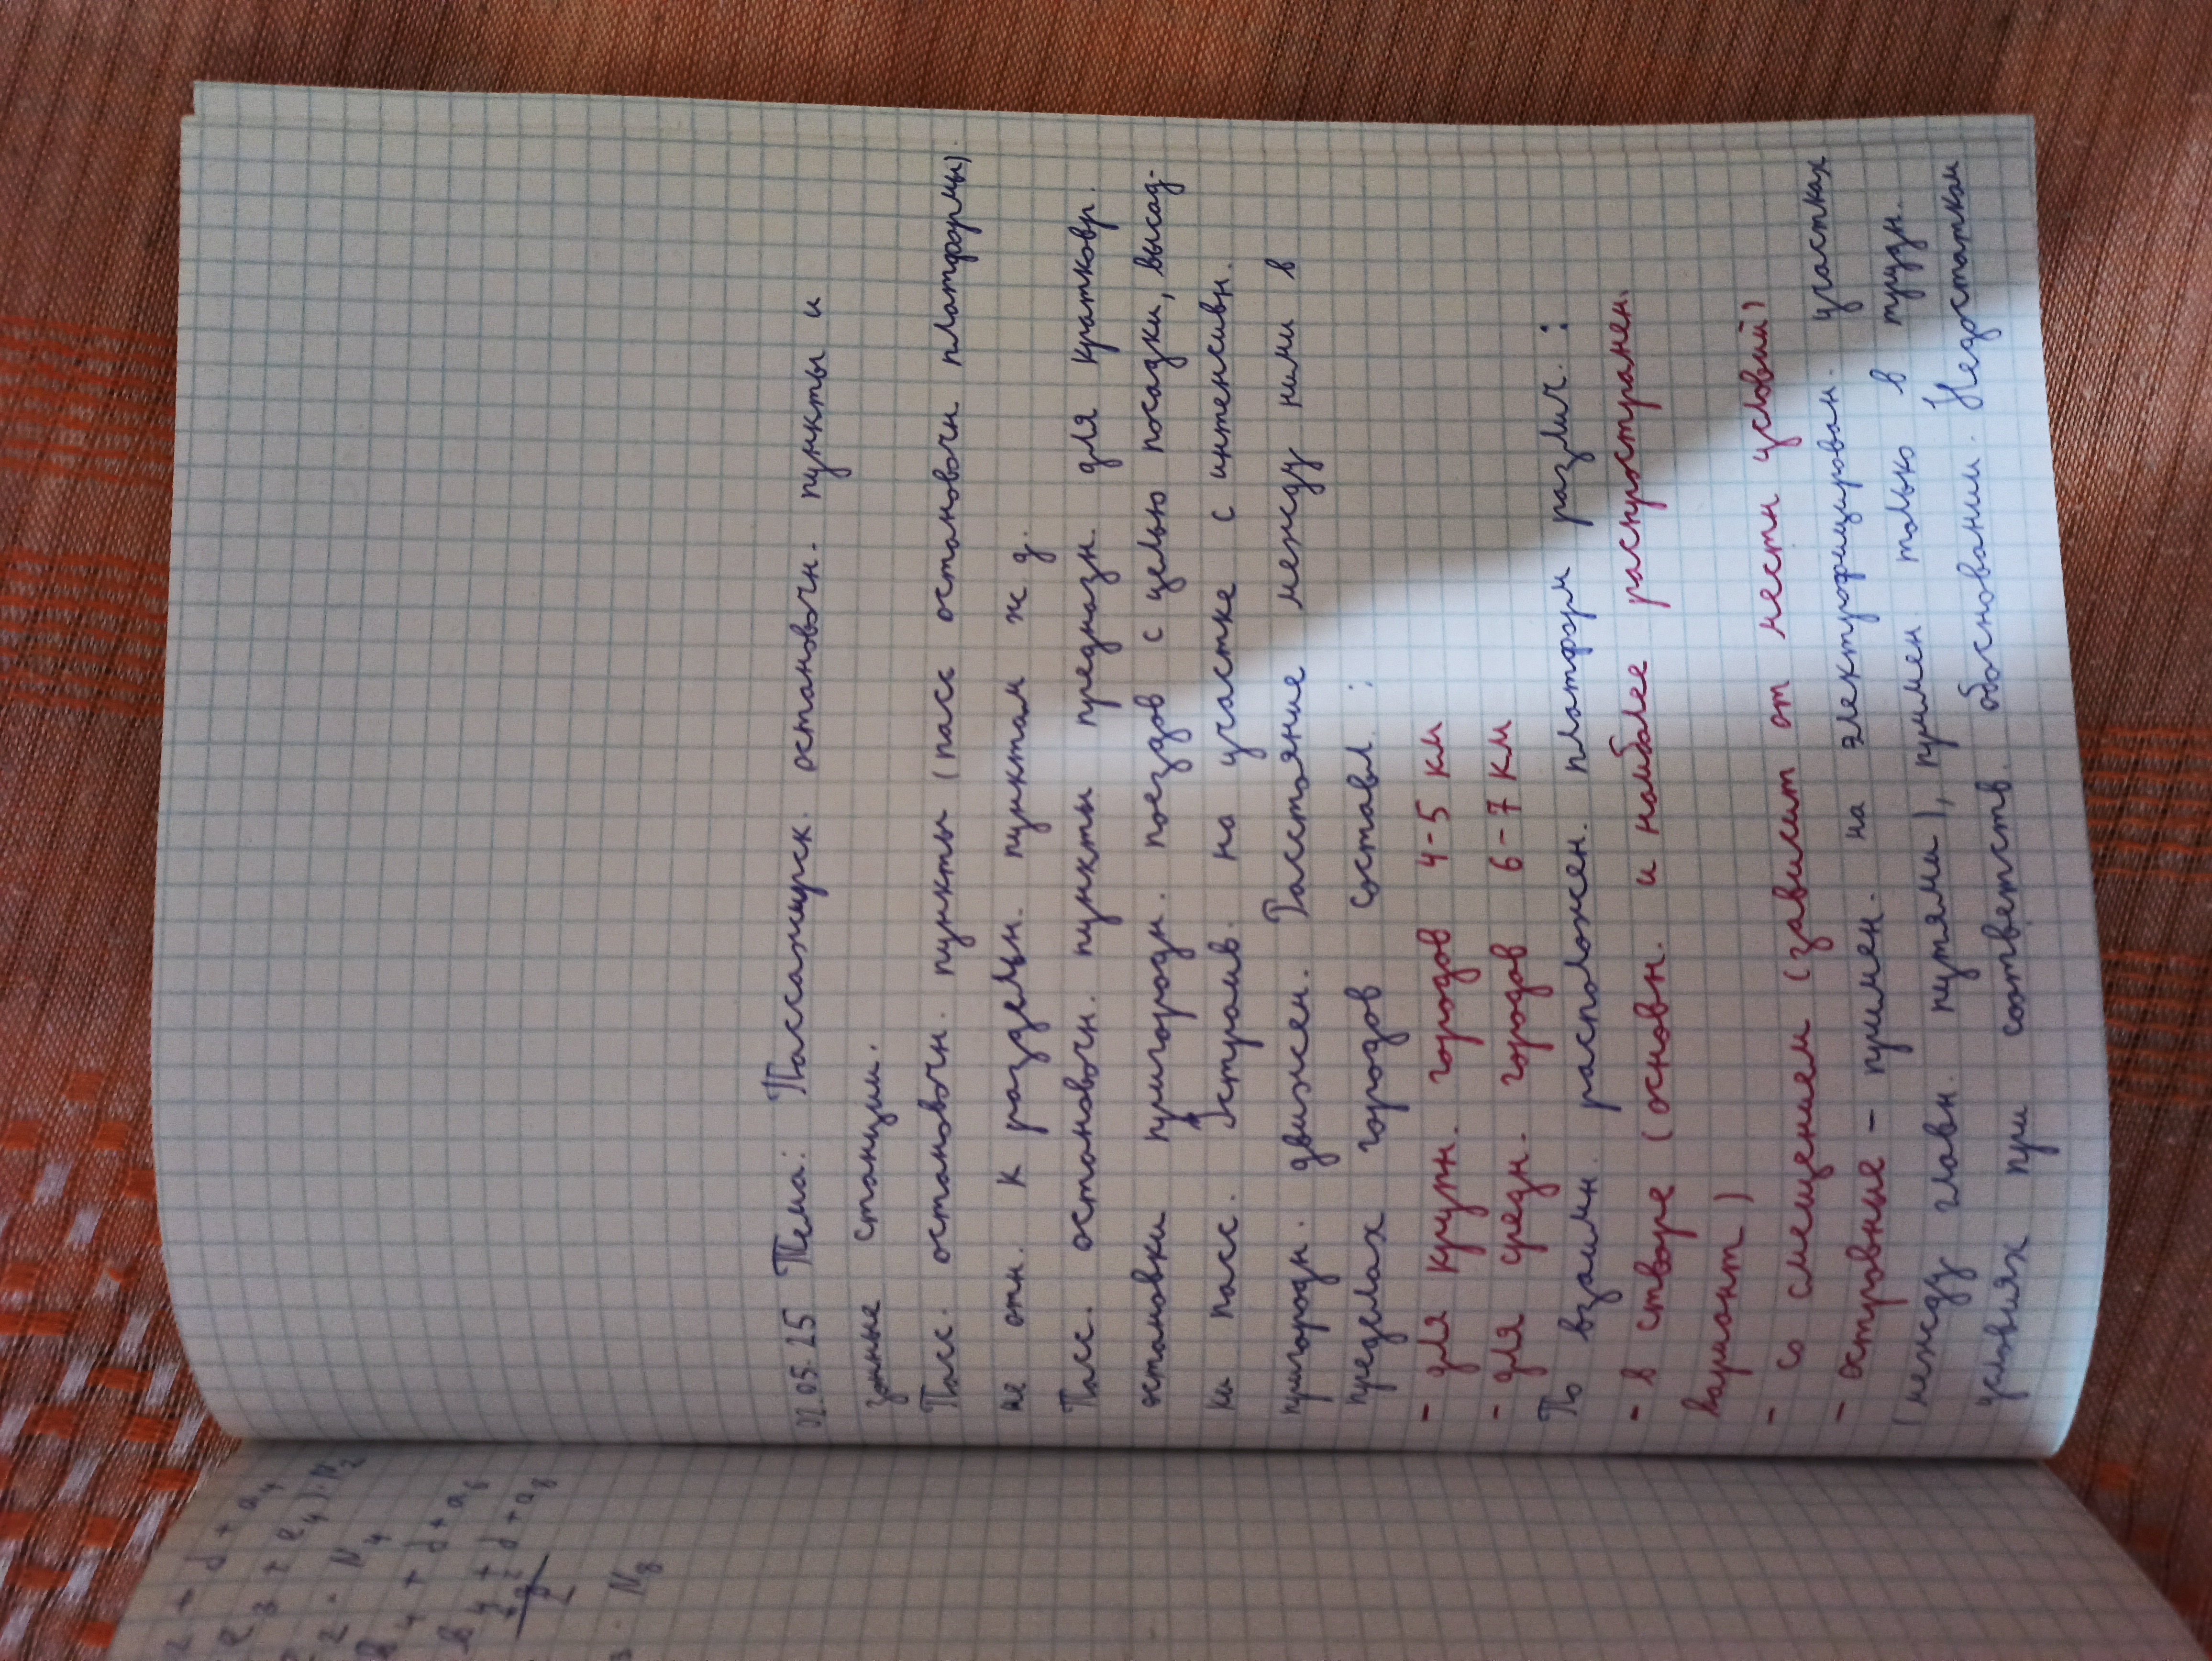 02.05.25 Тема: Пассажирск. остановочн. пункты и
зонные станции.
Пасс. остановочн. пункты (пасс остановочн платформы)
не отн. к раздельн. пунктам ж д.
Пасс. остановочн. пункты предназн. для кратковр.
остановки пригородн. поездов с целью посадки, высад-
ки пасс. Устраив. на участке с интенсивн.
пригородн. движен. Расстояние между ними в
пределах городов составл. :
- для крупн. городов 4-5 км
- для средн. городов 6-7 км
По взаимн. расположен. платформ различ. :
- в створе (основн. и наиболее распространен.
вариант)
- со смещением (зависит от местн условий)
- островные - примен. на электрофицирован. участках
(между главн. путями), примен. только в трудн.
условиях при соответств. обосновании. Недостатком
2 + d + a4
e3 + e4) · N2
2 · N4
в4 + d + a6
в4 + d + a8
3 · N8